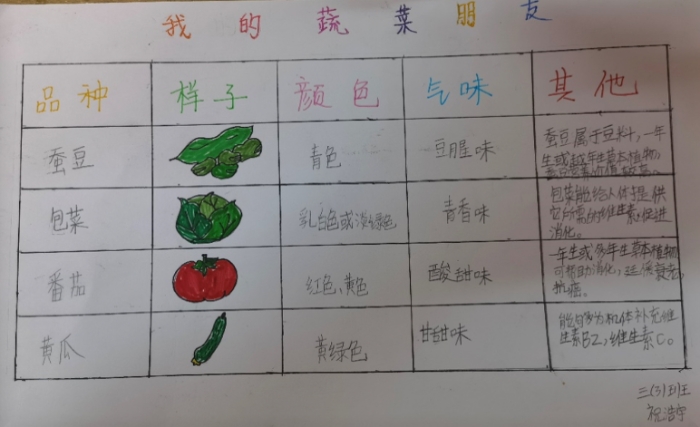 我的蔬菜朋友
品种 样子 颜色 气味 其他
蚕豆 青色 豆腥味
蚕豆属于豆科，一年
生或越年生草本植物，
包菜 乳白色或淡绿色 青香味
包菜能给人体提供
它所需的维生素，促进
消化。
番茄 红色、黄色 酸甜味
一年生或多年生草本植物
可帮助消化，
抗癌。
黄瓜 黄绿色 甘甜味
能够为机体补充维
生素B2，维生素C。
三(3)班
祝浩宇